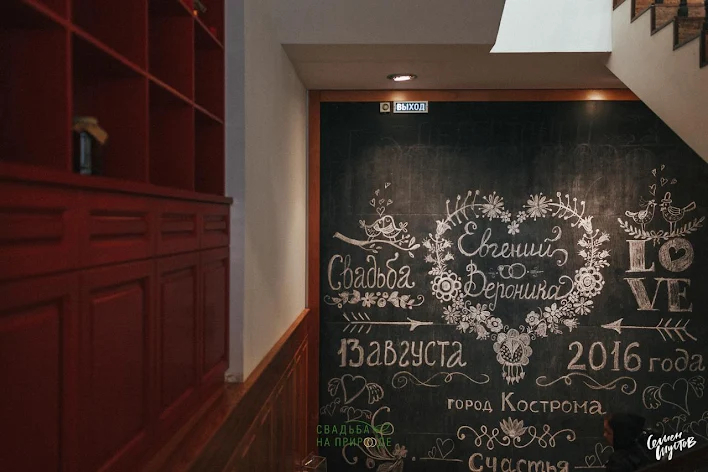 ВЫХОД
Евгений
Свадьба
Вероника
LO
VE
13 августа
2016 года
город Кострома
Счастья
СВАДЬБА
НА ПРИРОДЕ
Семен
Шустов